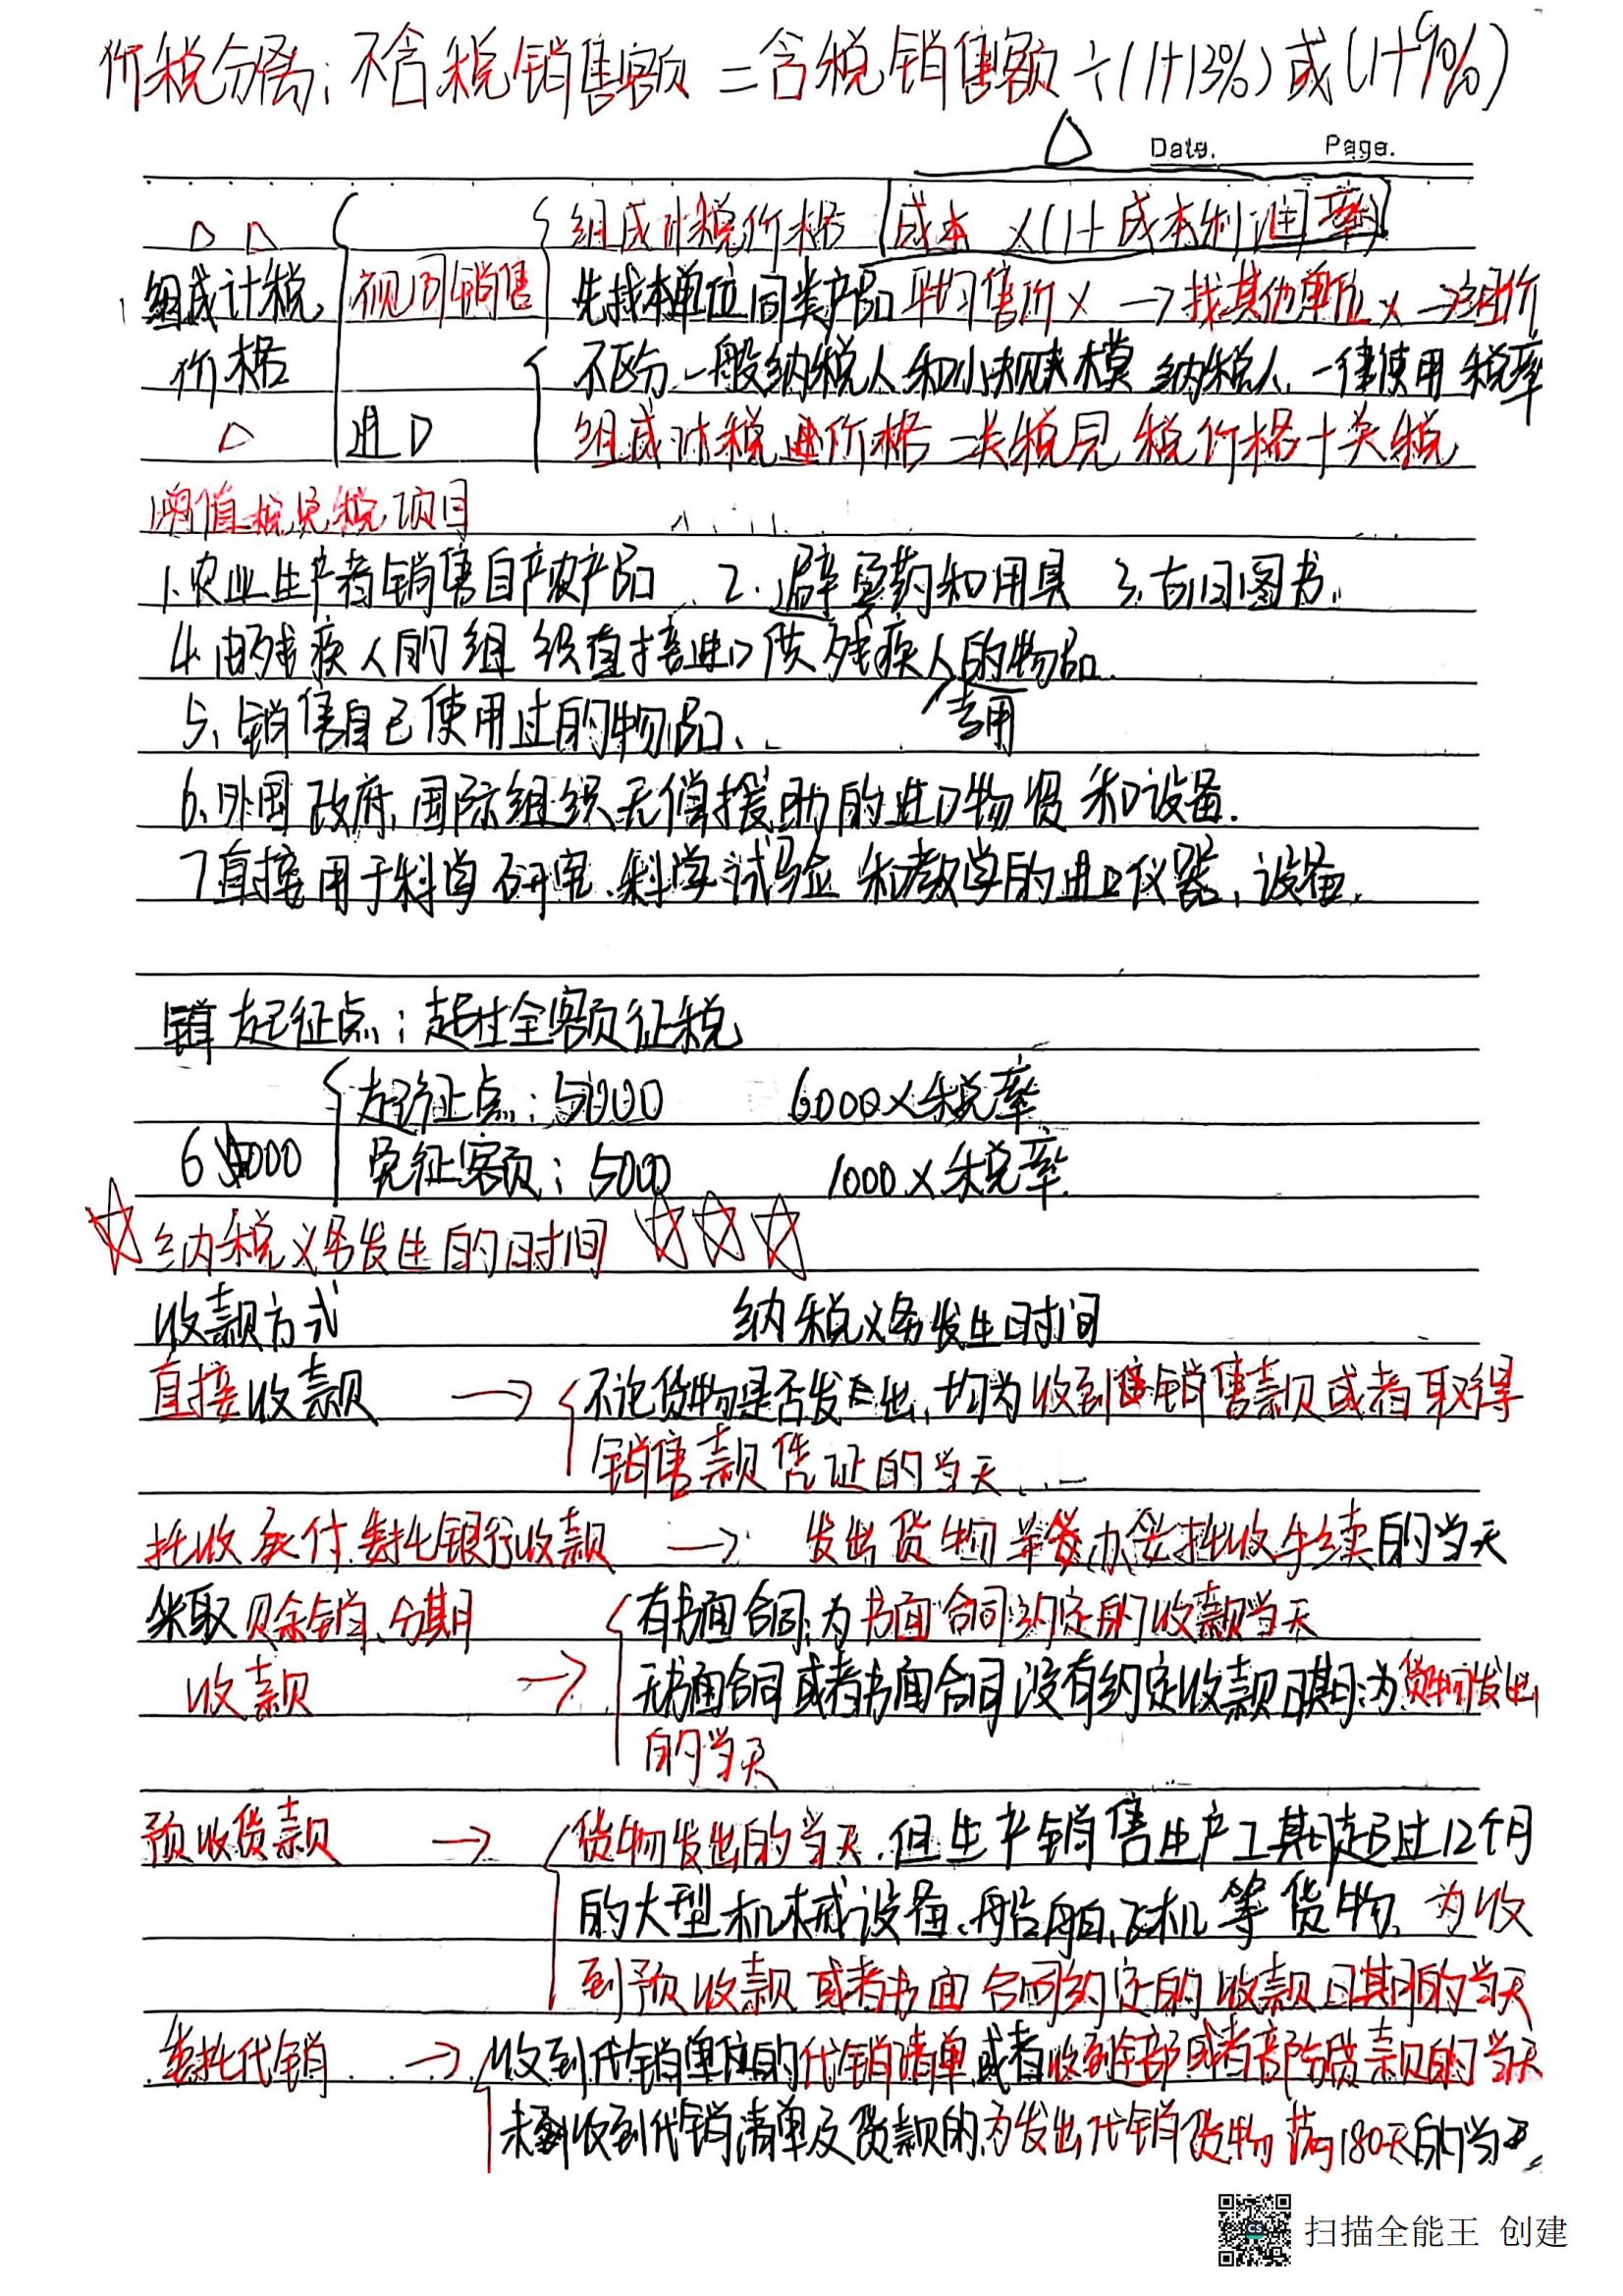 价税分离：不含税销售额＝含税销售额÷(1+13%)或(1+9%)
Date. Page.
组成计税价格 成本×(1+成本利润率)
组成计税 视同销售 先找本单位同类产品平均售价× →找其他单位× →组价
价格 不区分一般纳税人和小规模纳税人、一律使用税率
进口 组成计税价格＝关税完税价格＋关税
增值税免税项目
1.农业生产者销售自产农产品 2.避孕药和用具 3.古旧图书.
4.由残疾人的组织直接进口供残疾人的物品.
专用
5、销售自己使用过的物品、
6、外国政府、国际组织无偿援助的进口物资和设备.
7直接用于科学研究、科学试验和教学的进口仪器、设备.
起征点：超过全额征税
起征点：5000 6000×税率
6000 免征额：5000 1000×税率
纳税义务发生的时间
收款方式 纳税义务发生时间
直接收款 → 不论货物是否发出,均为收到销售款或者取得
销售款凭证的当天
托收承付、委托银行收款 → 发出货物并办妥托收手续的当天
采取赊销、分期 有书面合同:为书面合同约定的收款当天
收款 → 无书面合同或者书面合同没有约定收款日期:为货物发出
的当天
预收货款 → 货物发出的当天.但生产销售生产工期超过12个月
的大型机械设备、船舶、飞机等货物,为收
到预收款或者书面合同约定的收款日期的当天
委托代销 → 收到代销单位的代销清单或者收到全部或者部分货款的当天
未收到代销清单及货款的,为发出代销货物满180天的当天
扫描全能王 创建